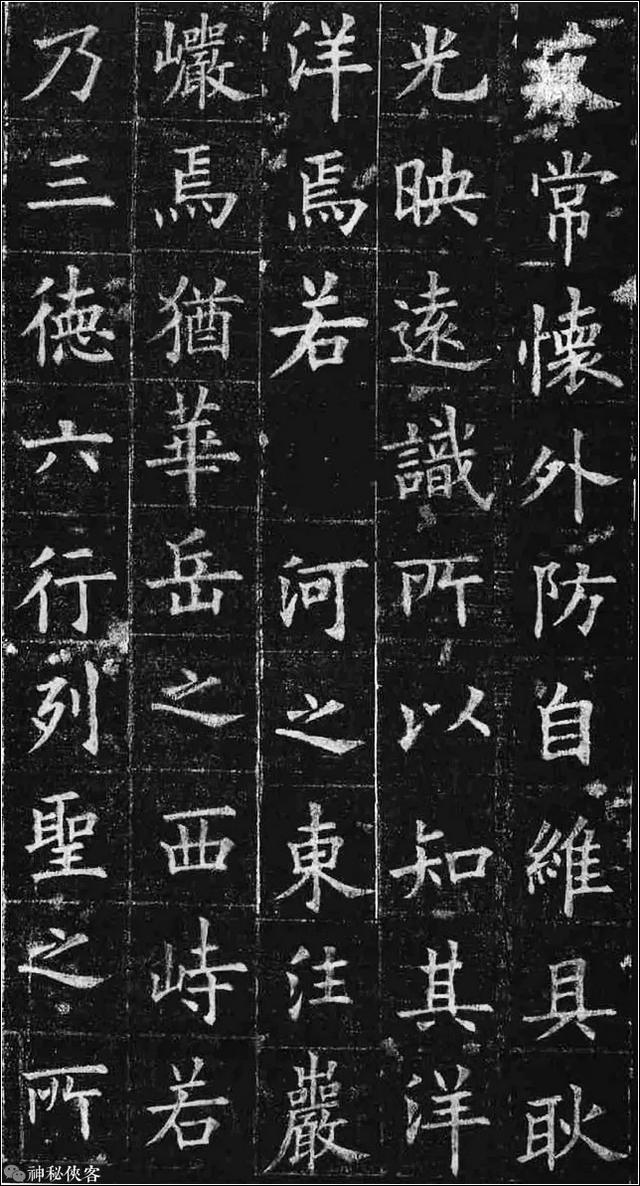 常懷外防自維具耿
光映遠識所以知其洋
洋焉若河之東注巖
巗焉猶華岳之西峙若
乃三德六行列聖之所
神秘俠客